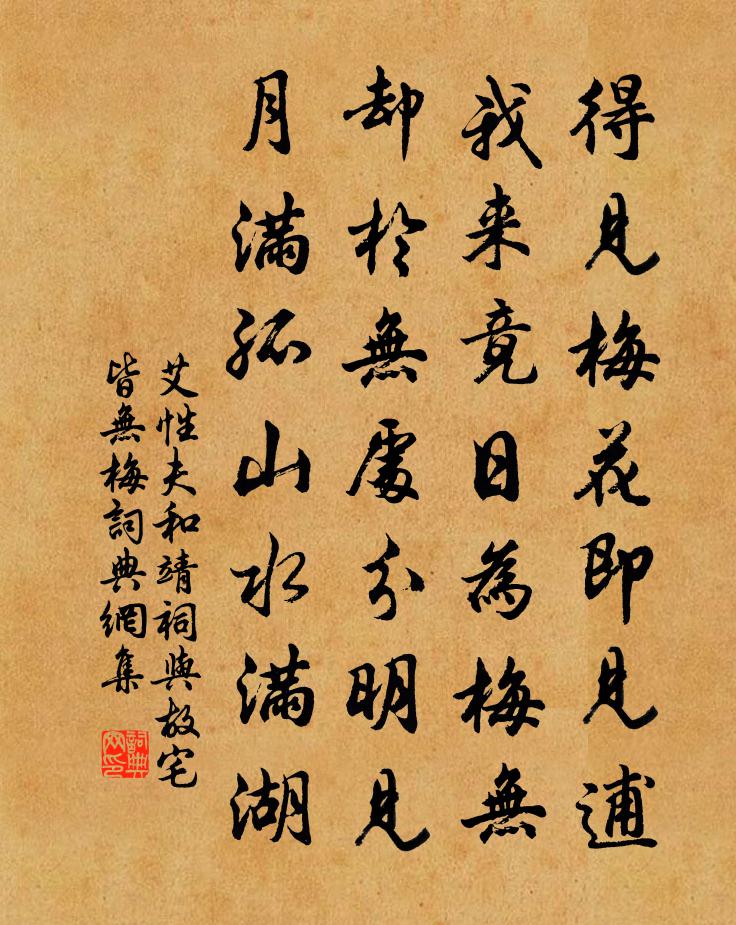 得見梅花即見逋
我来竟日為梅無
却於無處分明見
月滿孤山水滿湖
艾性夫和靖祠與故宅
皆無梅詞典網集
詞典网印